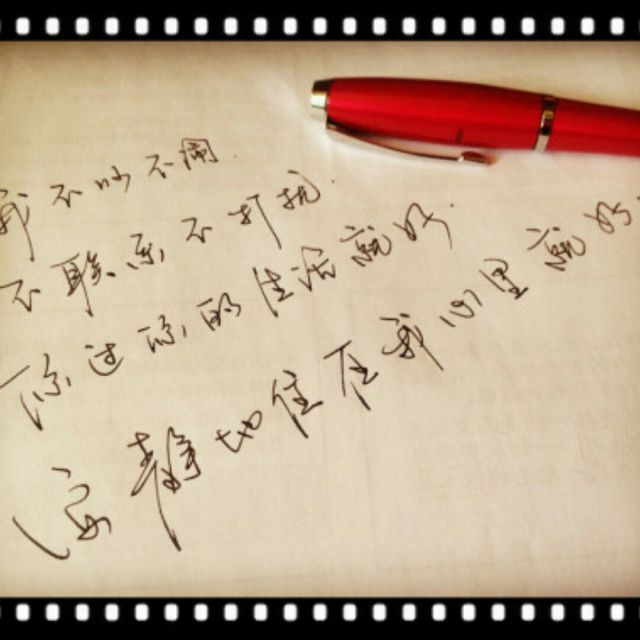 我不吵不闹.
不联系不打扰.
你过你的生活就好.
安静地住在我心里就好.